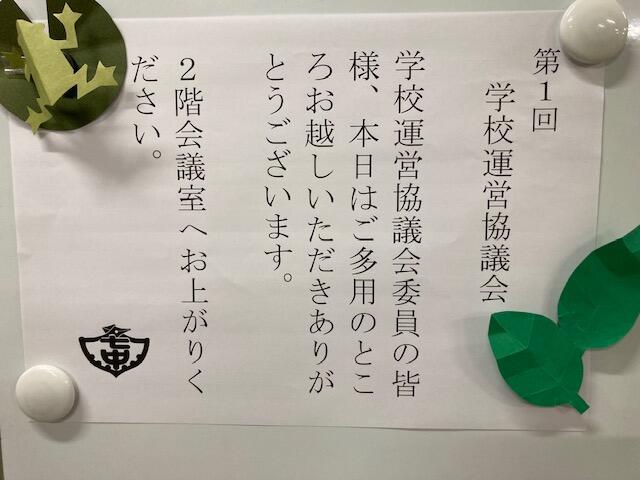 第１回
学校運営協議会
学校運営協議会委員の皆
様、本日はご多用のとこ
ろお越しいただきありが
とうございます。
２階会議室へお上がりく
ださい。